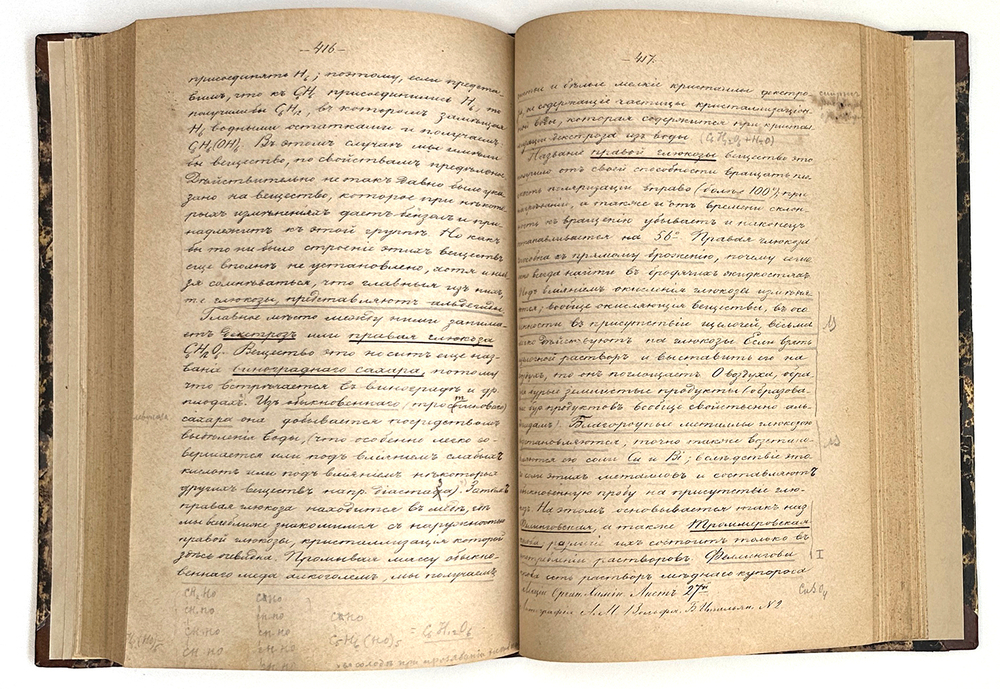 — 416 —
присоединять H6; поэтому, если предста-
вимъ, что къ присоединились H6, то
получимъ бы въ которомъ замѣщая
H6 водными остатками и получаемъ
(OH)6 Въ этомъ случаѣ мы имѣли
бы вещество, по свойствамъ предѣльное.
Дѣйствительно не такъ давно было ука-
зано на вещество, которое при нѣкото-
рыхъ измѣненіяхъ даетъ бензолъ и при-
надлежитъ къ этой группѣ. Но какъ
бы то ни было строеніе этихъ веществъ
еще вполнѣ не установлено, хотя и нель-
зя сомнѣваться, что главныя изъ нихъ,
т. е. глюкозы, представляютъ альдегиды.
Главное мѣсто между ними занима-
етъ декстрозъ или правая глюкоза
Вещество это носитъ еще наз-
ваніе винограднаго сахара, потому
что встрѣчается въ виноградѣ и др.
плодахъ. Изъ обыкновеннаго (тростниковаго)
сахара она добывается посредствомъ
выдѣленія воды, (что особенно легко со-
вершается или подъ вліяніемъ слабыхъ
кислотъ или подъ вліяніемъ нѣкоторыхъ
другихъ веществъ напр. діастаза). Затѣмъ
правая глюкоза находится въ меду, гдѣ
мы всего ближе знакомимся съ наружностью
правой глюкозы, кристаллизація которой
здѣсь очевидна. Промывая массу обыкно-
веннаго меда алкоголемъ, мы получаемъ
CH2HO CHHO
CHHO CHHO CHHO
CHHO CHHO C5H6(HO)5 = C6H12O6
CHHO CHHO
— 417 —
и бѣлые мелкіе кристаллы декстро-
зы, не содержащіе частицы кристаллизаціон-
ной воды, которая содержится при кристал-
лизаціи декстроза изъ воды (C6H12O6 + H2O)
Названіе правой глюкозы вещество это
получило отъ своей способности вращать пло-
скость поляризаціи вправо (болѣе 100°) при
нагрѣваніи, а также и отъ времени склон-
ность къ вращенію убываетъ и наконецъ
останавливается на 56° Правая глюкоза
способна къ прямому броженію, почему ее мож-
но всегда найти въ бродячихъ жидкостяхъ.
Подъ вліяніемъ окисленія глюкоза измѣняе-
тся; вообще окисляющія вещества, въ осо-
бенности въ присутствіи щелочей, весьма
легко дѣйствуютъ на глюкозы Если взять
щелочной растворъ и выставить его на
воздухъ, то онъ поглощаетъ O воздуха, обра-
зуя бурые землистые продукты (образова-
ніе бур. продуктовъ вообще свойственно аль-
дегидамъ). Благородные металлы глюкозою
возстановляются, точно также возстано-
вляются ею соли Cu и Bi; вслѣдствіе это-
го соли этихъ металловъ и составляютъ
основную пробу на присутствіе глю-
козъ. На этомъ основывается такъ наз.
Фелинговская, а также Троммеровская
проба, различіе ихъ состоитъ только въ
употребленіи растворовъ. Фелингова
проба есть растворъ мѣднаго купороса
CuSO4
Лекціи Орган. Химіи. Листъ 27й
Литографія А. М. Вольфа. № 2